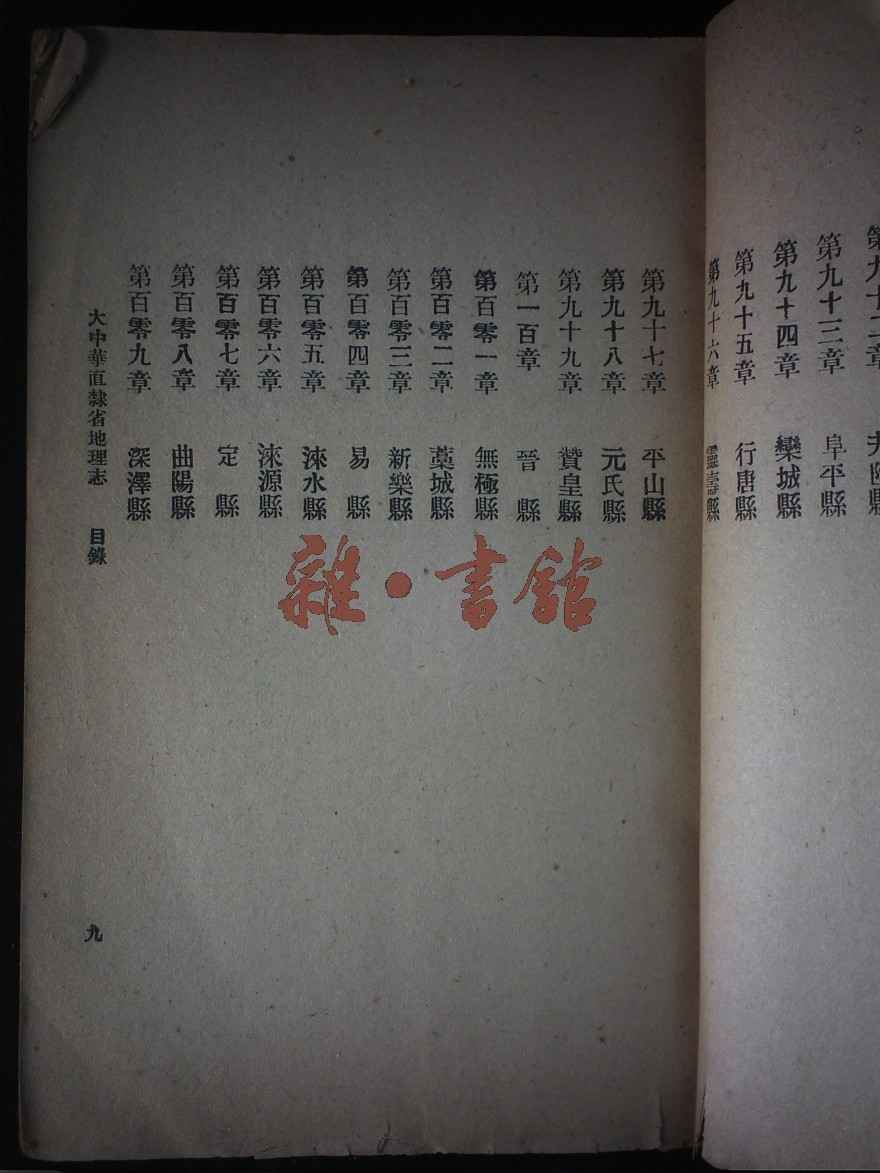 第九十三章 阜平縣
第九十四章 欒城縣
第九十五章 行唐縣
第九十六章 靈壽縣
第九十七章 平山縣
第九十八章 元氏縣
第九十九章 贊皇縣
第一百章 晉縣
第百零一章 無極縣
第百零二章 藁城縣
第百零三章 新樂縣
第百零四章 易縣
第百零五章 淶水縣
第百零六章 淶源縣
第百零七章 定縣
第百零八章 曲陽縣
第百零九章 深澤縣
大中華直隸省地理志 目錄
九
雜·書館